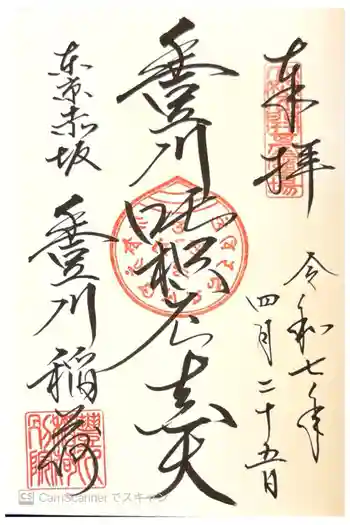 奉拝
令和七年
四月二十五日
豊川吒枳尼真天
東京赤坂
豊川稲荷
CS CamScanner でスキャン